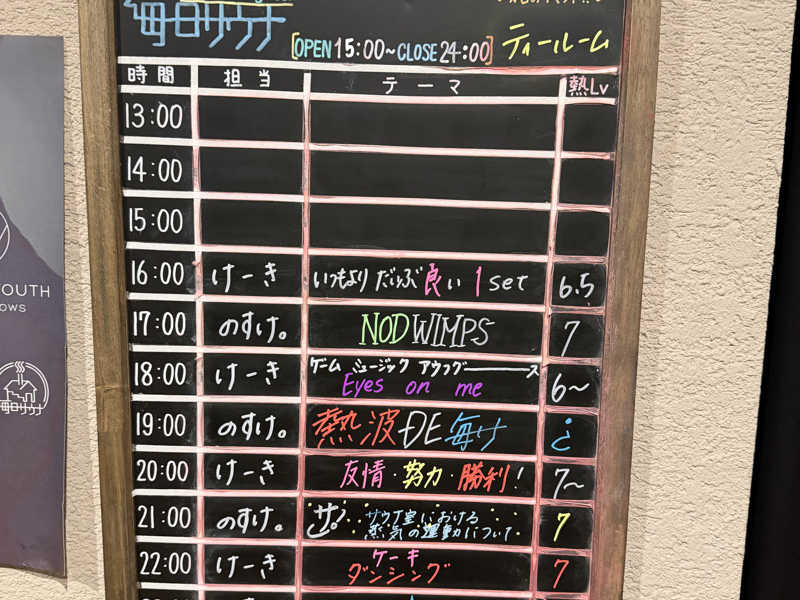 毎日サウナ
[OPEN 15:00~CLOSE 24:00] ティールーム
時間 担当 テーマ 熱Lv
13:00
14:00
15:00
16:00 けーき いつもより だいぶ 良い 1 set 6.5
17:00 のすけ。 NOD WIMPS 7
18:00 けーき ゲーム ミュージック アウフグース
Eyes on me 6~
19:00 のすけ。 熱波DE毎け ¿
20:00 けーき 友情・努力・勝利! 7~
21:00 のすけ。 サ! サウナ室における
蒸気の運動について 7
22:00 けーき ケーキ
ダンシング 7
OUTH
OWS
毎日サウナ